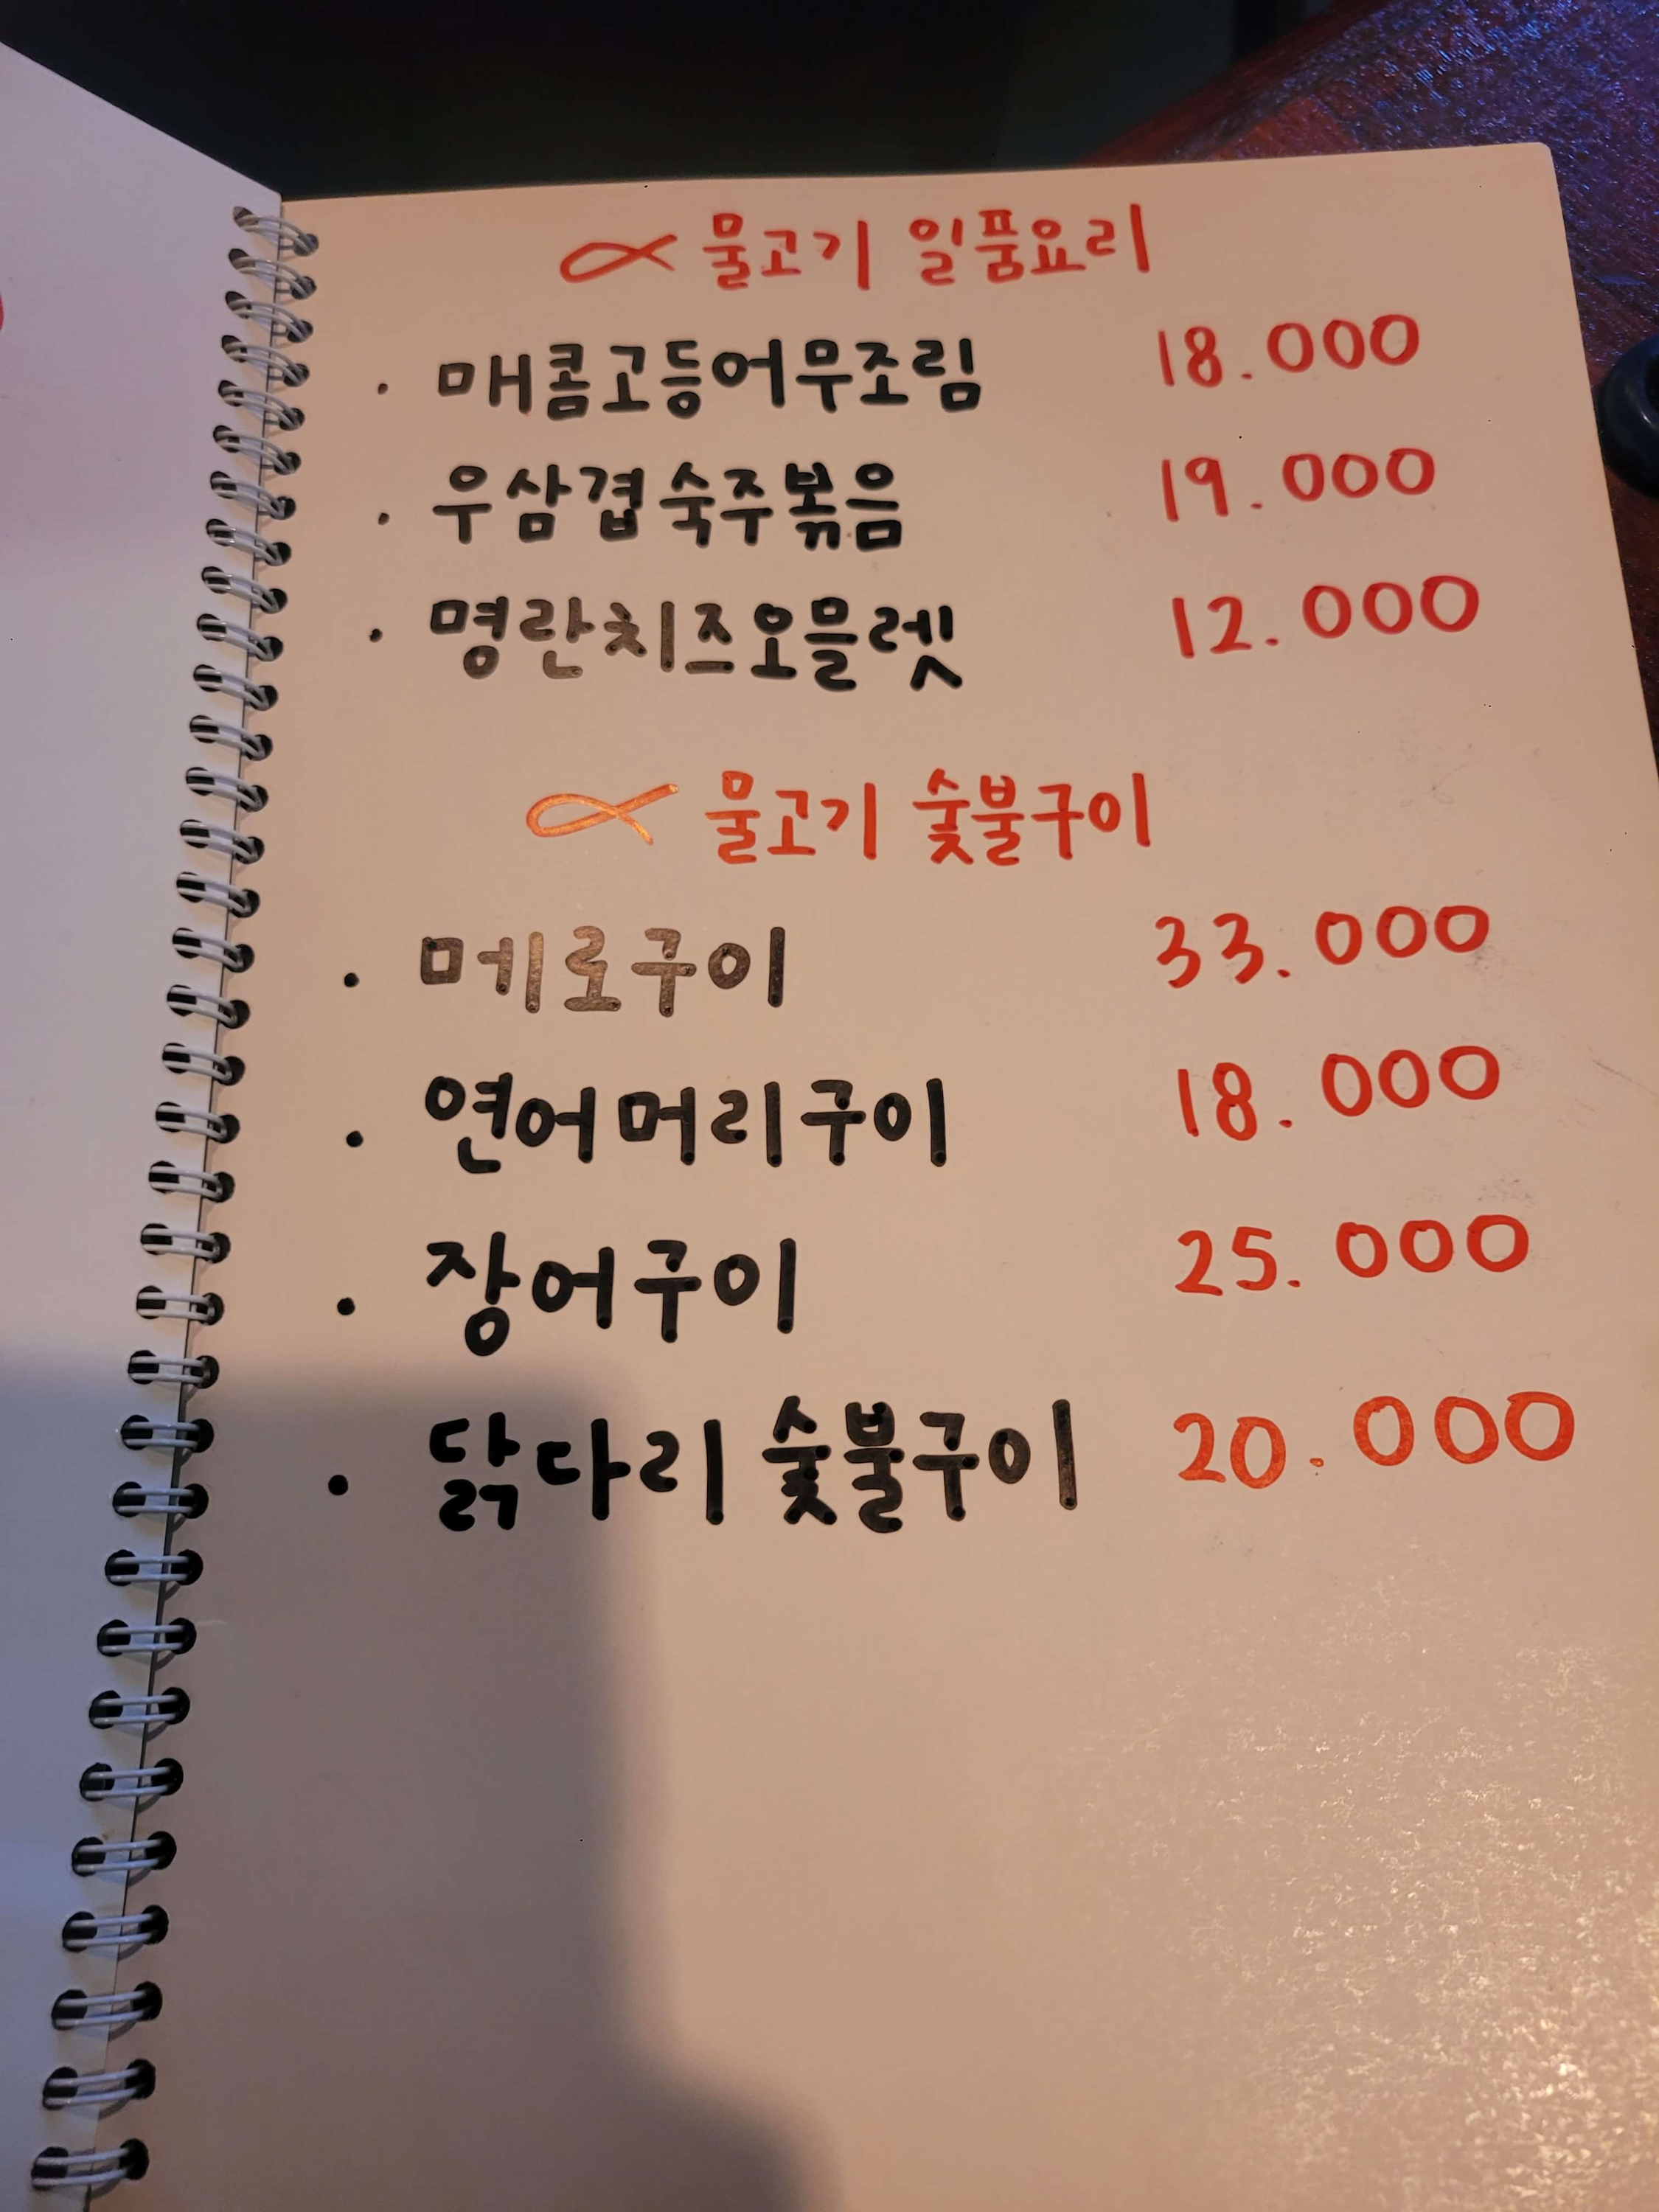 물고기 일품요리
· 매콤고등어무조림 18.000
· 우삼겹숙주볶음 19.000
· 명란치즈오믈렛 12.000
물고기 숯불구이
· 메로구이 33.000
· 연어머리구이 18.000
· 장어구이 25.000
· 닭다리 숯불구이 20.000